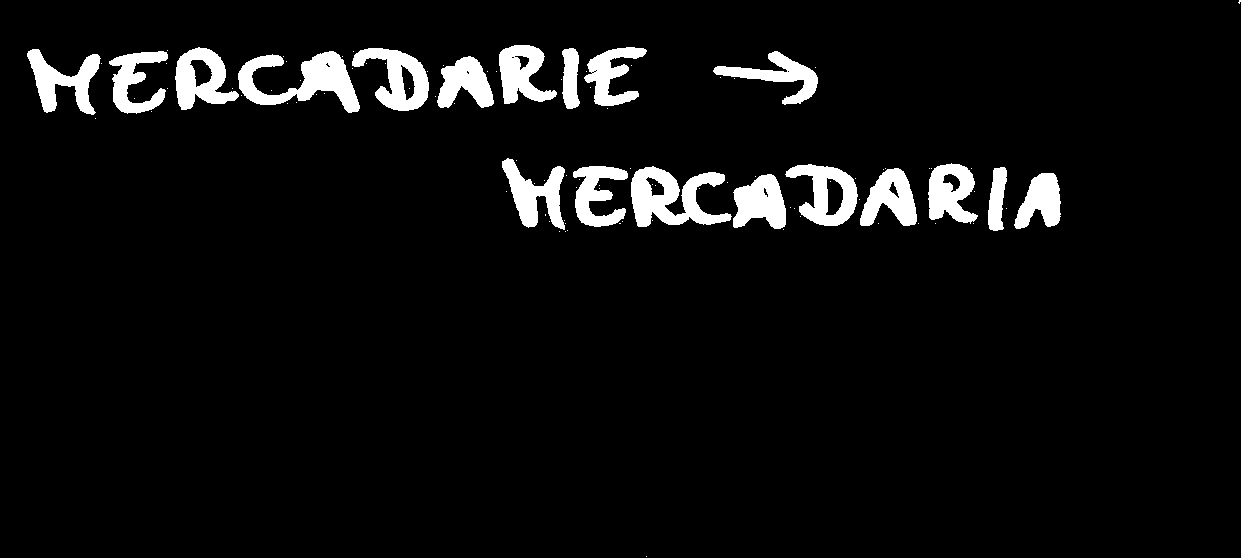 MERCADARIE →
MERCADARIA